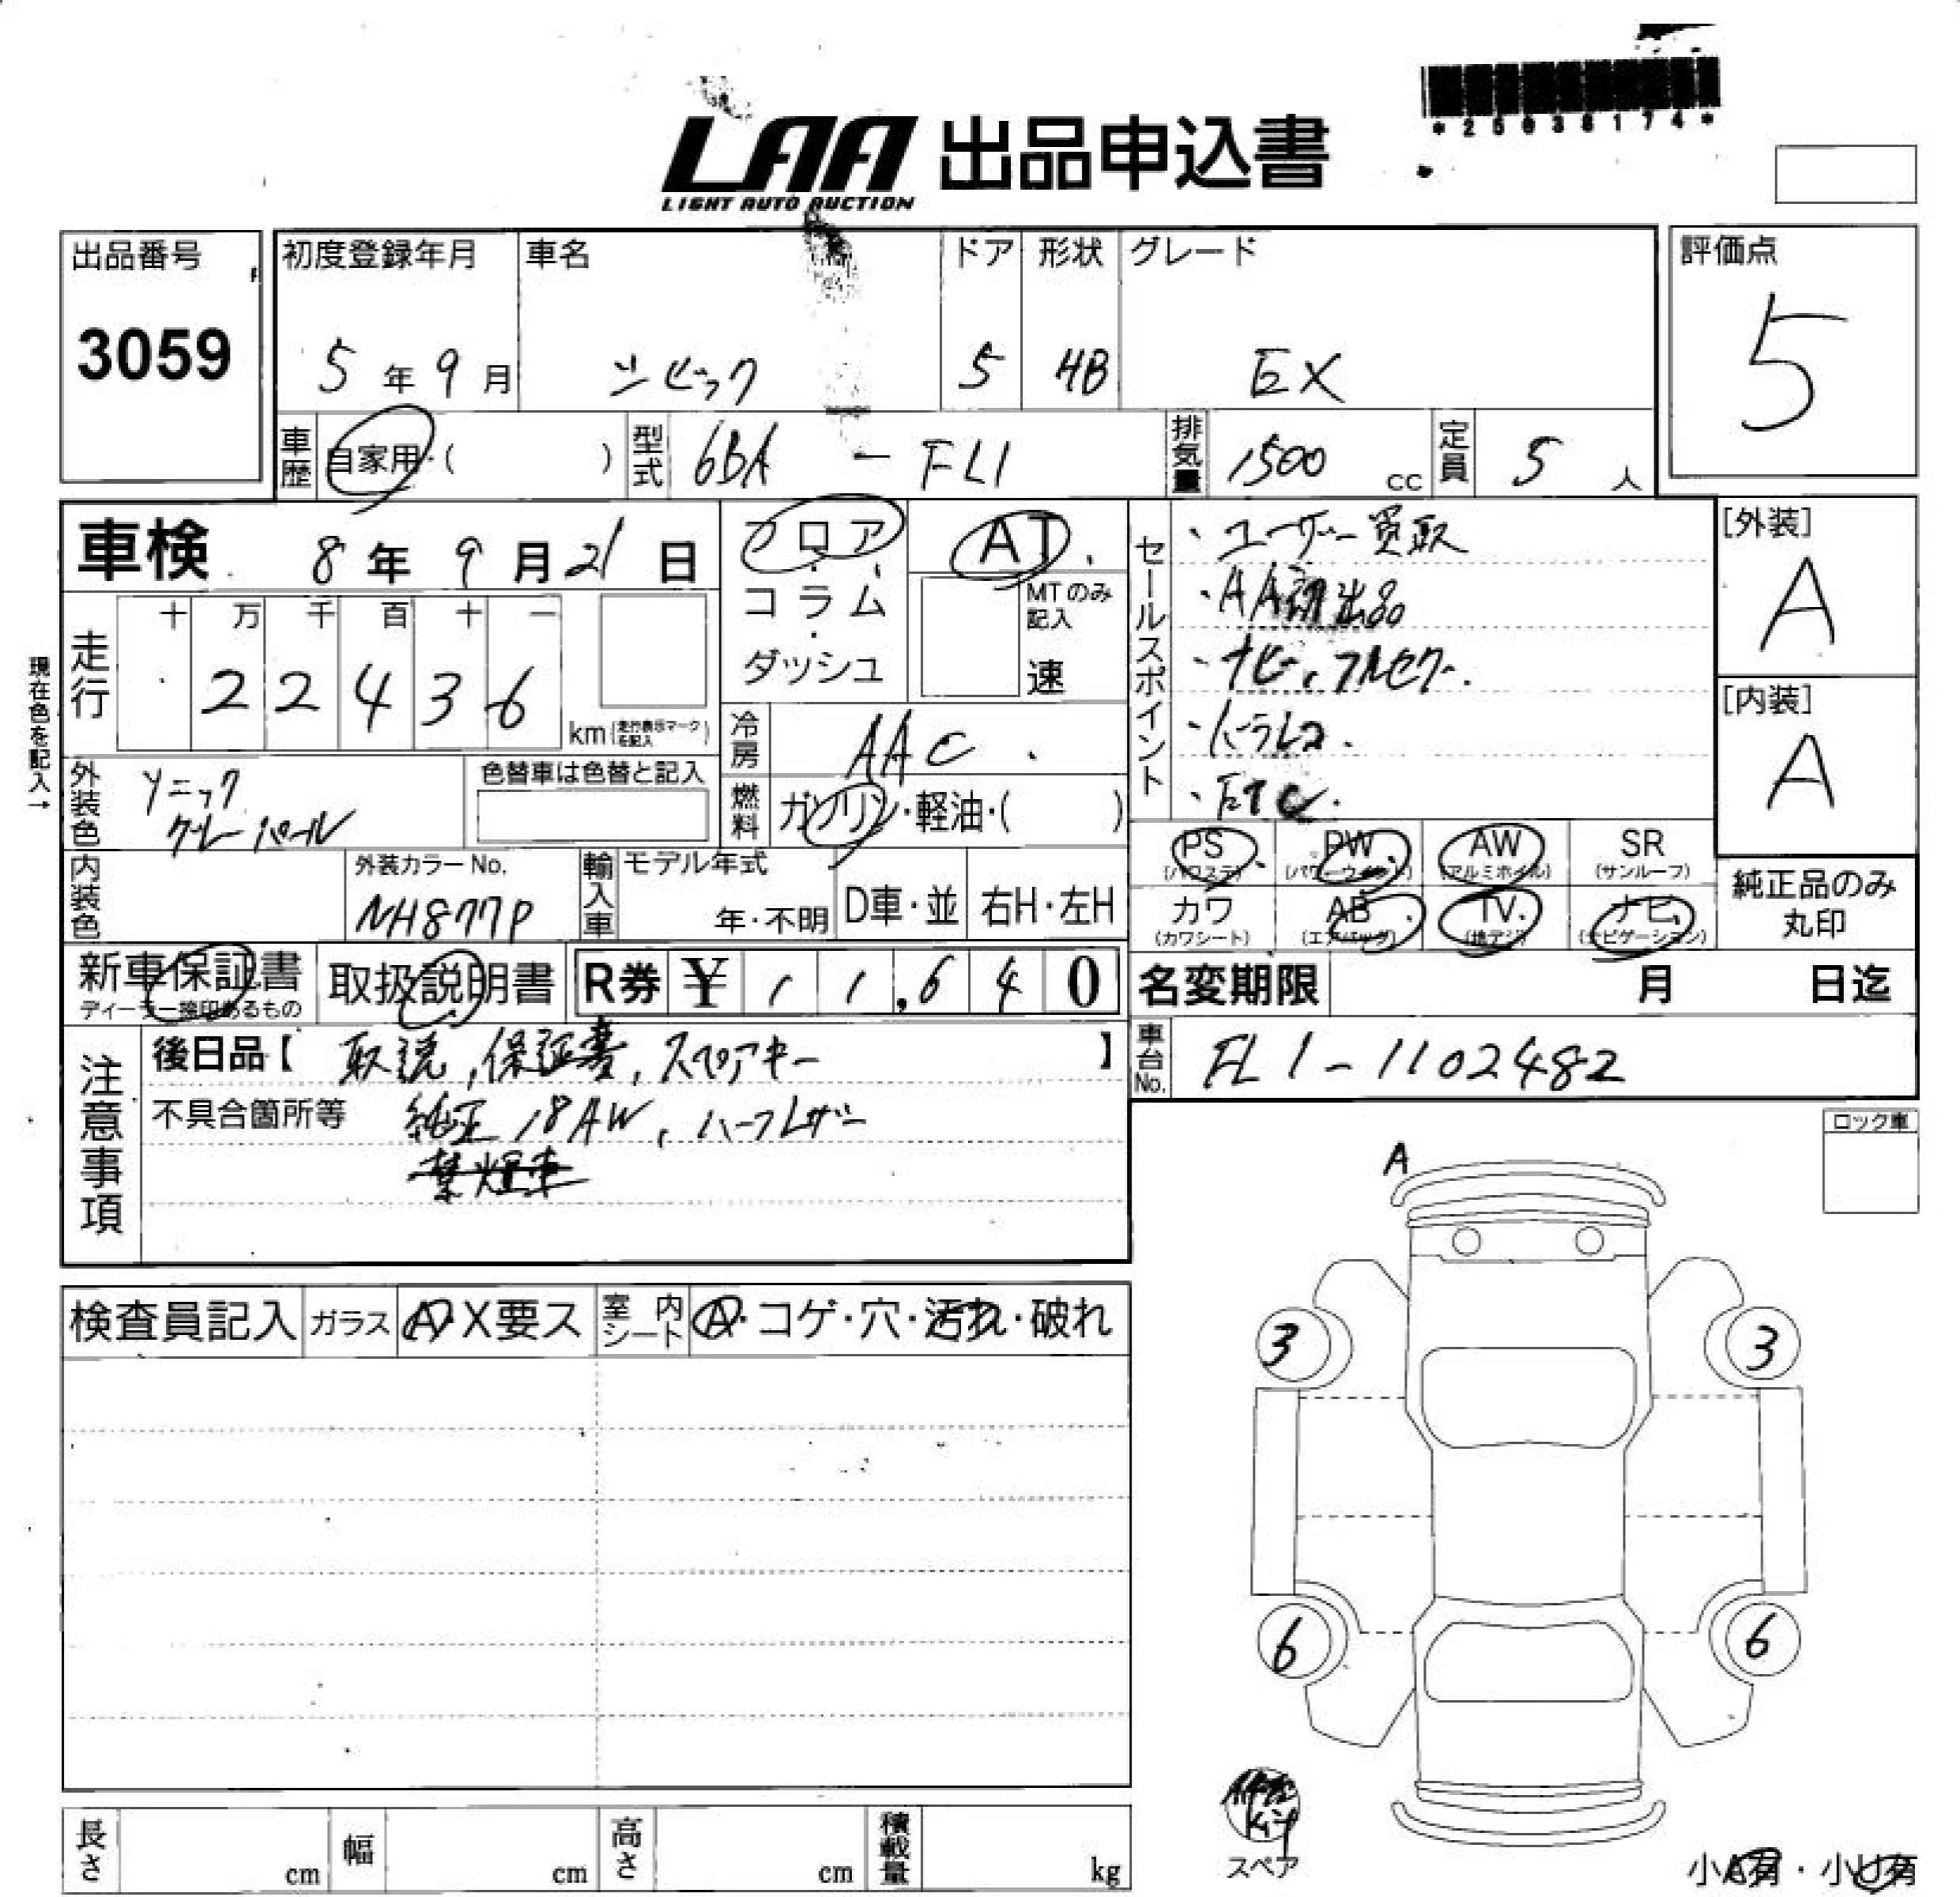 LAA 出品申込書
LIGHT AUTO AUCTION
*25038174*
出品番号
3059
初度登録年月
5年9月
車名
シビック
ドア
5
形状
HB
グレード
EX
評価点
5
車歴 自家用・( )
型式 6BA - FL1
排気量 1500 cc
定員 5 人
車検 8年9月21日
フロア・コラム・ダッシュ
AT
MTのみ記入
速
セールスポイント
・ユーザー買取
・AA初出品
・ナビ、フルセグ.
・バラレコ.
・ETC.
[外装]
A
[内装]
A
現在色を記入→
走行 十 万 千 百 十 一
22436
km (走行表示マークを記入)
冷房 AAC
燃料 ガソリン・軽油・( )
外装色 ソニックグレーパール
色替車は色替と記入
内装色
外装カラーNo.
NH877P
輸入車
モデル年式
年・不明
D車・並
右H・左H
PS (パワステ)
PW (パワーウインド)
AW (アルミホイル)
SR (サンルーフ)
カワ (カワシート)
AB (エアバッグ)
TV (地デジ)
ナビ (ナビゲーション)
純正品のみ丸印
新車保証書
ディーラー捺印あるもの
取扱説明書
R券 ¥11,640
名変期限 月 日迄
車台No. FL1-1102482
注意事項
後日品【取説,保証書,スペアキー】
不具合箇所等 純正18AW,ハーフレザー
禁煙車
ロック車
A
検査員記入
ガラス A・X要ス
室内シート A・コゲ・穴・汚れ・破れ
3
3
6
6
Kit
スペア
長さ cm
幅 cm
高さ cm
積載量 kg
小A有・小U有